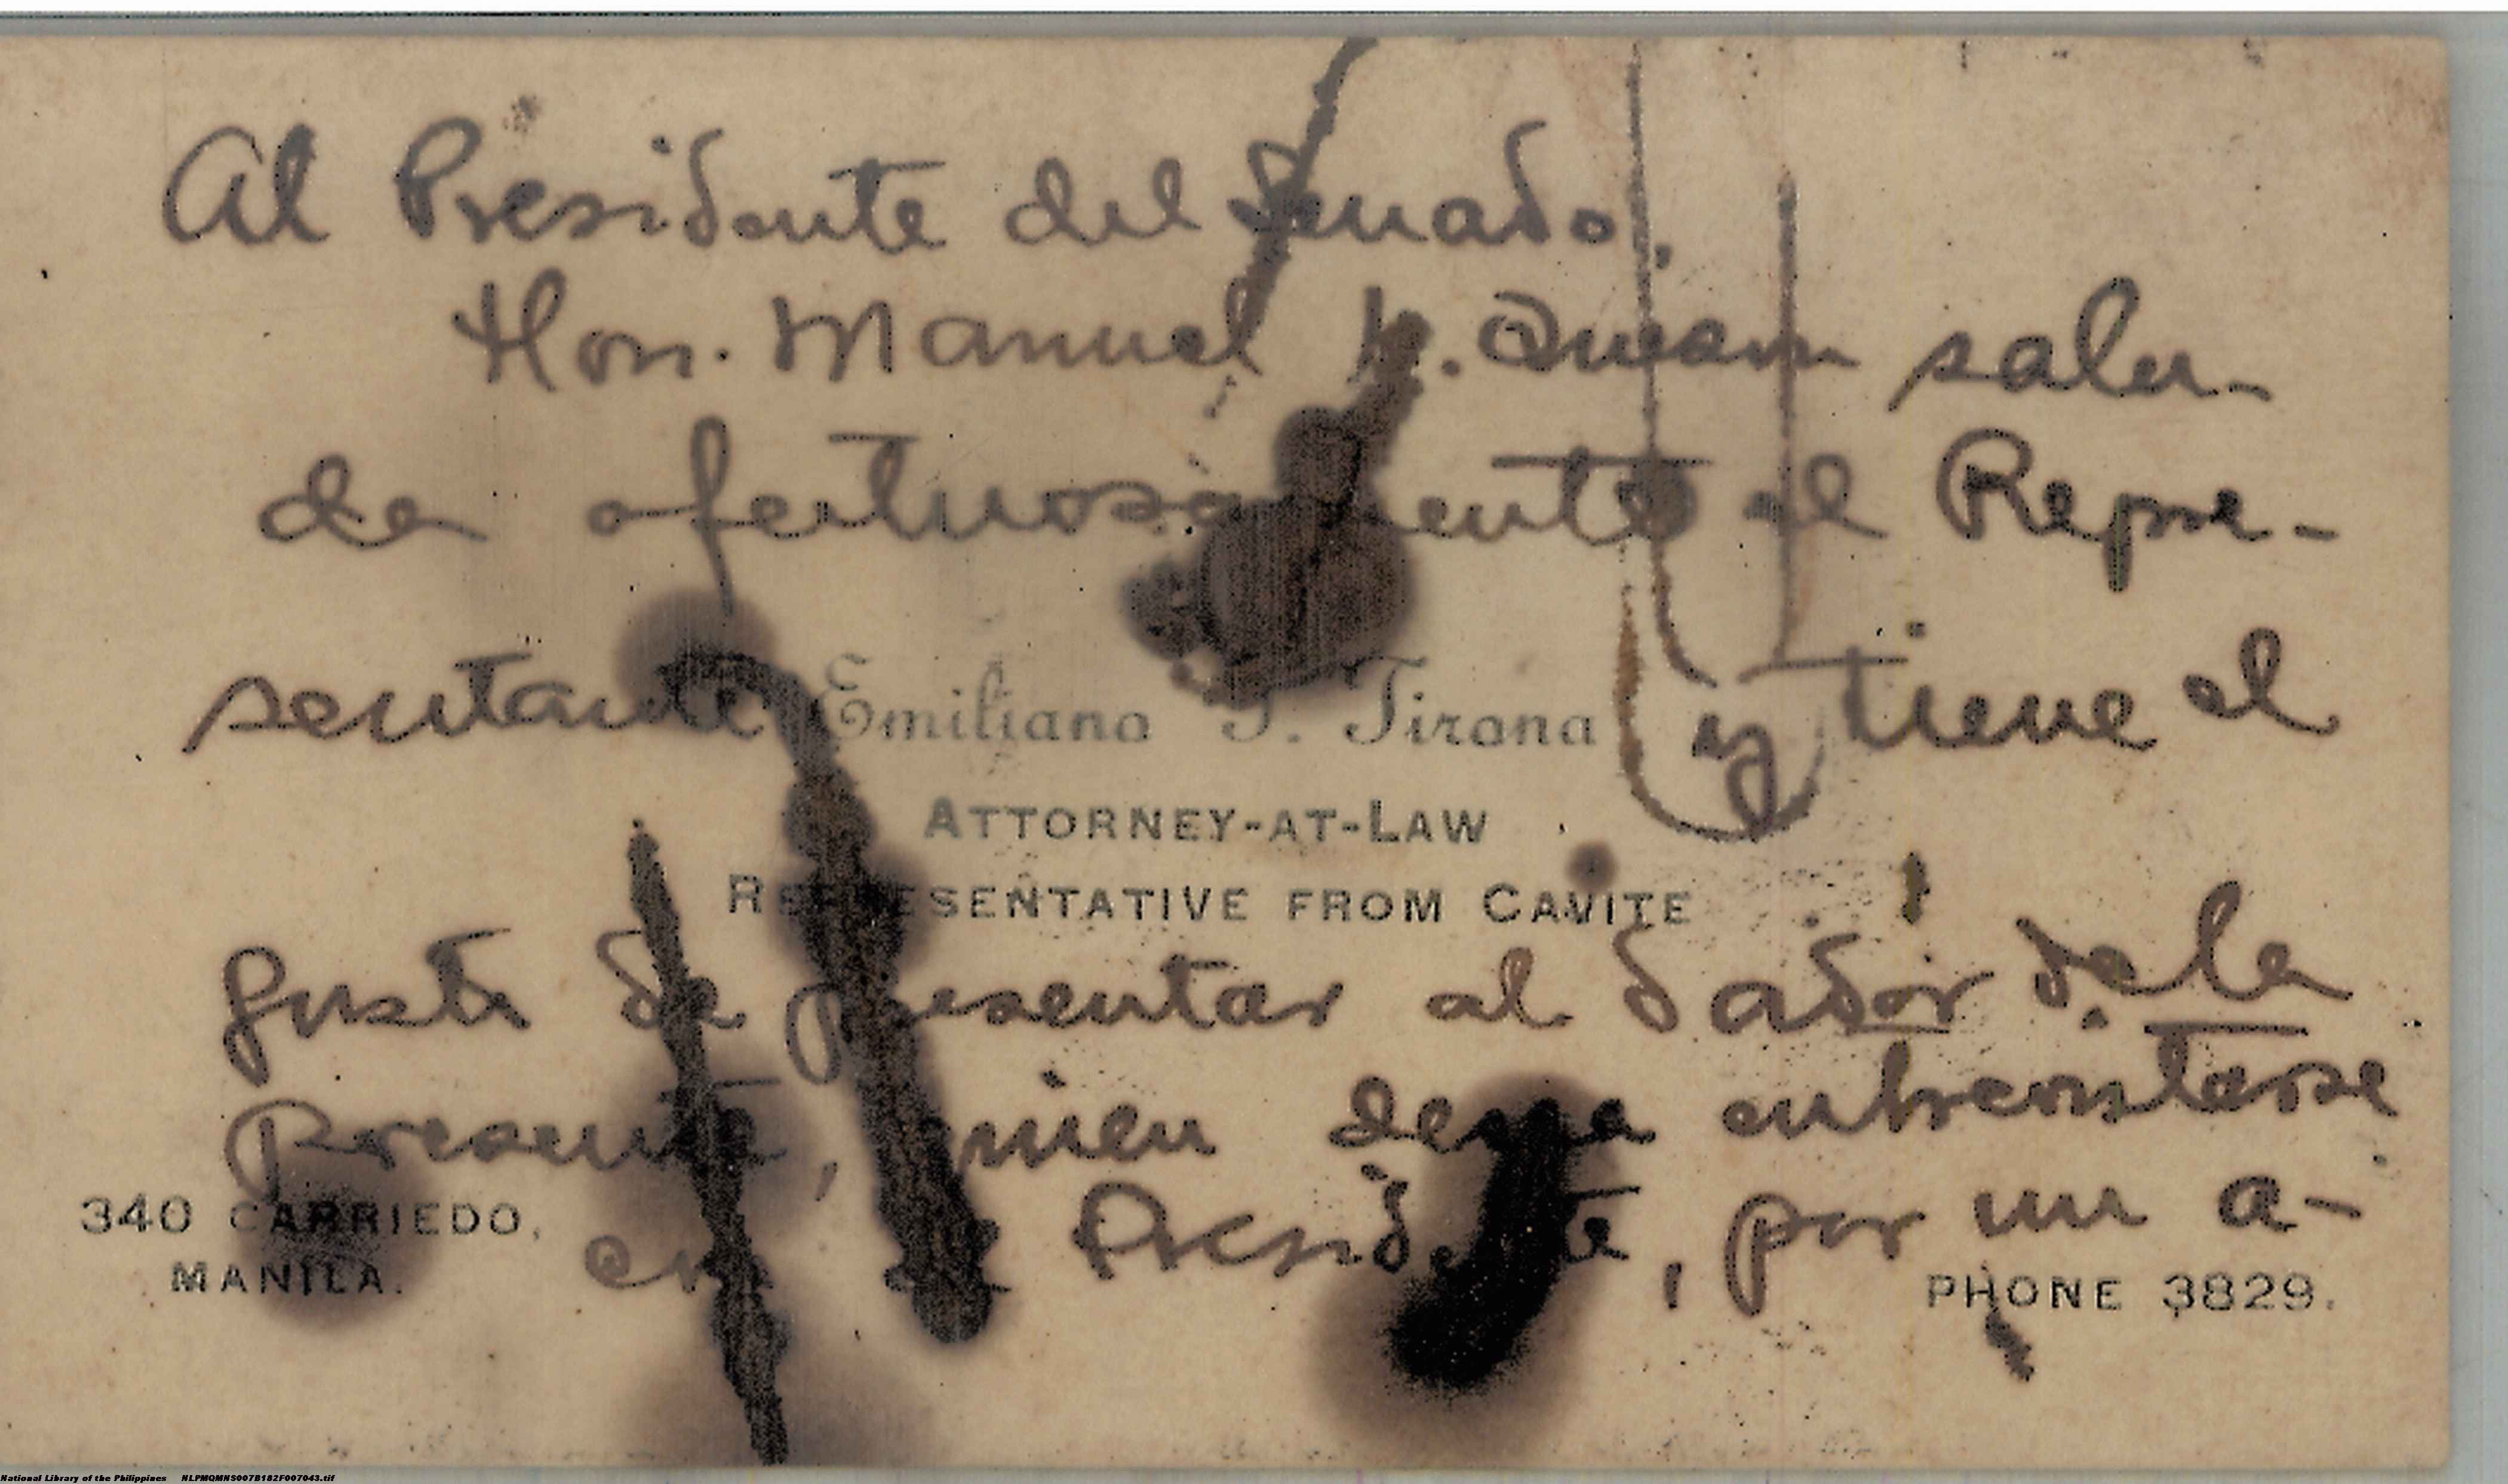 Al Presidente del Senado,
Hon. Manuel L. Quezon salu-
da afectuosamente el Repre-
sentante Emiliano T. Tirona y tiene el
ATTORNEY-AT-LAW
REPRESENTATIVE FROM CAVITE
gusto de presentar al dador de la
Presente, quien desea entrevistarse
340 CARRIEDO,
MANILA.
con el Presidente, por un a-
PHONE 3829.
National Library of the Philippines NLPMQMNS007B182F007043.tif